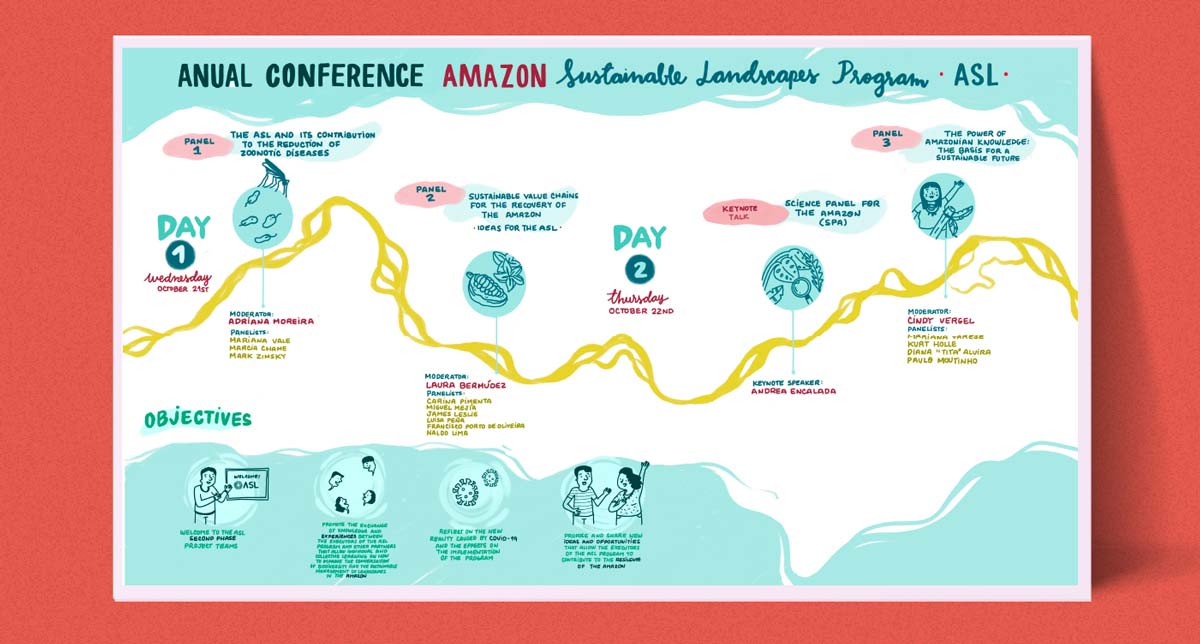 ANUAL CONFERENCE AMAZON Sustainable Landscapes Program · ASL ·
PANEL
1
THE ASL AND ITS CONTRIBUTION
TO THE REDUCTION OF
ZOONOTIC DISEASES
DAY
1
Wednesday
OCTOBER 21ST
MODERATOR:
ADRIANA MOREIRA
PANELISTS:
MARIANA VALE
MARCIA CHAME
MARK ZIMSKY
PANEL
2
SUSTAINABLE VALUE CHAINS
FOR THE RECOVERY OF
THE AMAZON
· IDEAS FOR THE ASL ·
MODERATOR:
LAURA BERMÚDEZ
PANELISTS:
CARINA PIMENTA
MIGUEL MEJÍA
JAMES LESLIE
LUISA PEÑA
FRANCISCO PORTO DE OLIVEIRA
NALDO LIMA
DAY
2
thursday
OCTOBER 22ND
KEYNOTE
TALK
SCIENCE PANEL FOR
THE AMAZON
(SPA)
KEYNOTE SPEAKER:
ANDREA ENCALADA
PANEL
3
THE POWER OF
AMAZONIAN KNOWLEDGE:
THE BASIS FOR A
SUSTAINABLE FUTURE
MODERATOR:
CINDY VERGEL
PANELISTS:
MARIANA VARESE
KURT HOLLE
DIANA "TITA" ALVIRA
PAULO MOUTINHO
OBJECTIVES
WELCOME!
ASL
WELCOME TO THE ASL
SECOND PHASE
PROJECT TEAMS
PROMOTE THE EXCHANGE
OF KNOWLEDGE AND
EXPERIENCES BETWEEN
THE EXECUTORS OF THE ASL
PROGRAM AND OTHER PARTNERS
THAT ALLOW INDIVIDUAL AND
COLLECTIVE LEARNING ON HOW
TO PROMOTE THE CONSERVATION
OF BIODIVERSITY AND THE SUSTAINABLE
MANAGEMENT OF LANDSCAPES
IN THE AMAZON
REFLECT ON THE NEW
REALITY CAUSED BY COVID-19
AND THE EFFECTS ON
THE IMPLEMENTATION
OF THE PROGRAM
PROMOTE AND SHARE NEW
IDEAS AND OPPORTUNITIES
THAT ALLOW THE EXECUTORS
OF THE ASL PROGRAM TO
CONTRIBUTE TO THE RESILIENCE
OF THE AMAZON